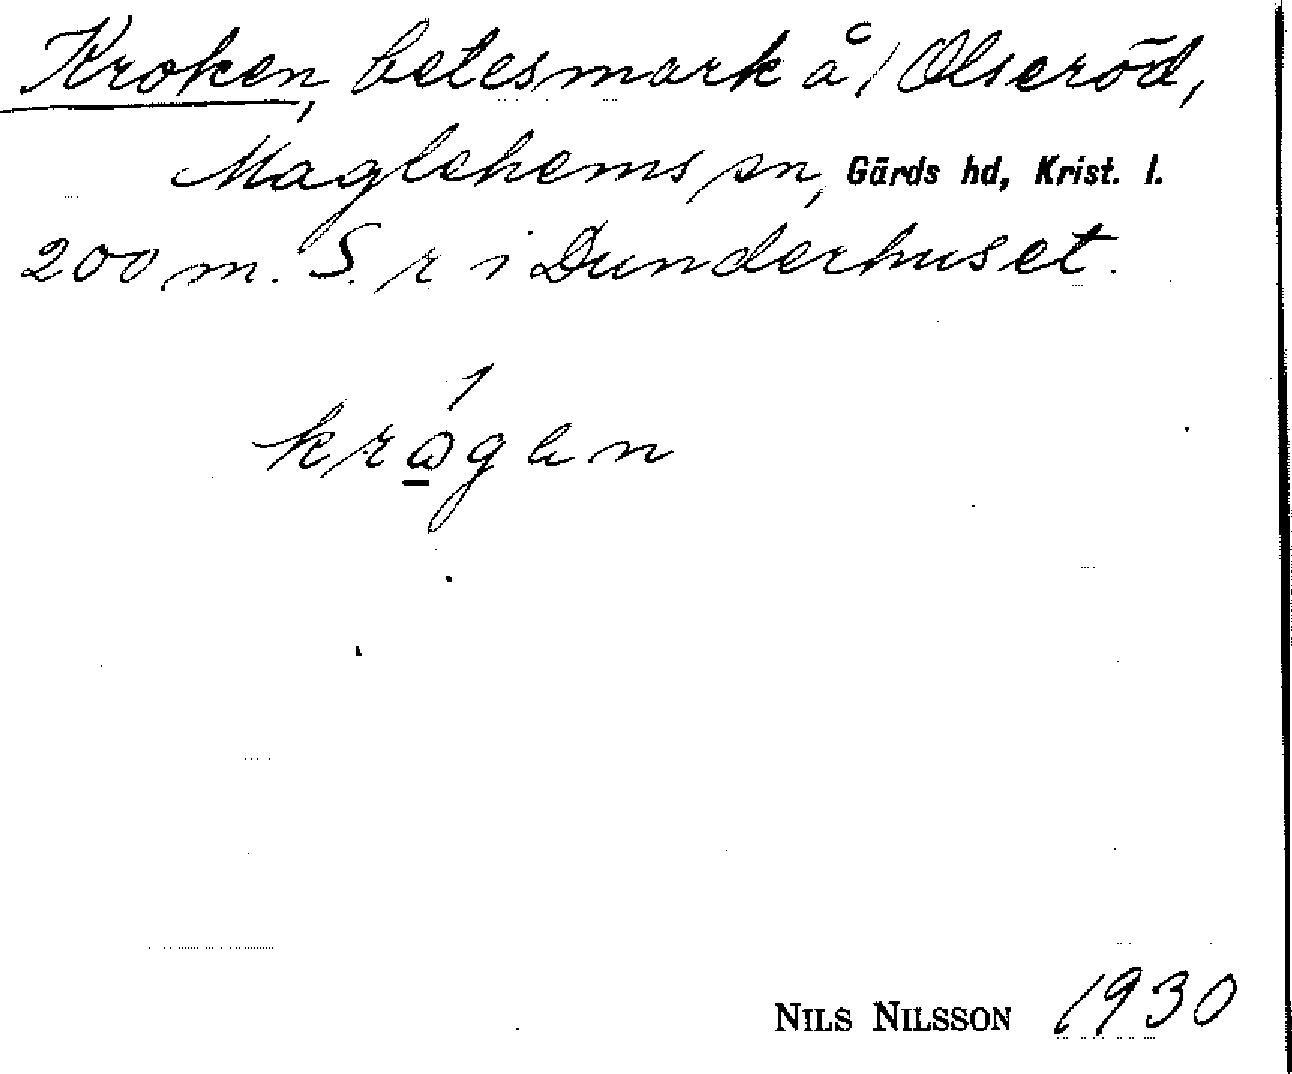 Kroken, betesmark å 1 Olseröd,
Maglehems sn, Gärds hd, Krist. l.
200 m. S. r i Dunderhuset.
krågen
NILS NILSSON 1930